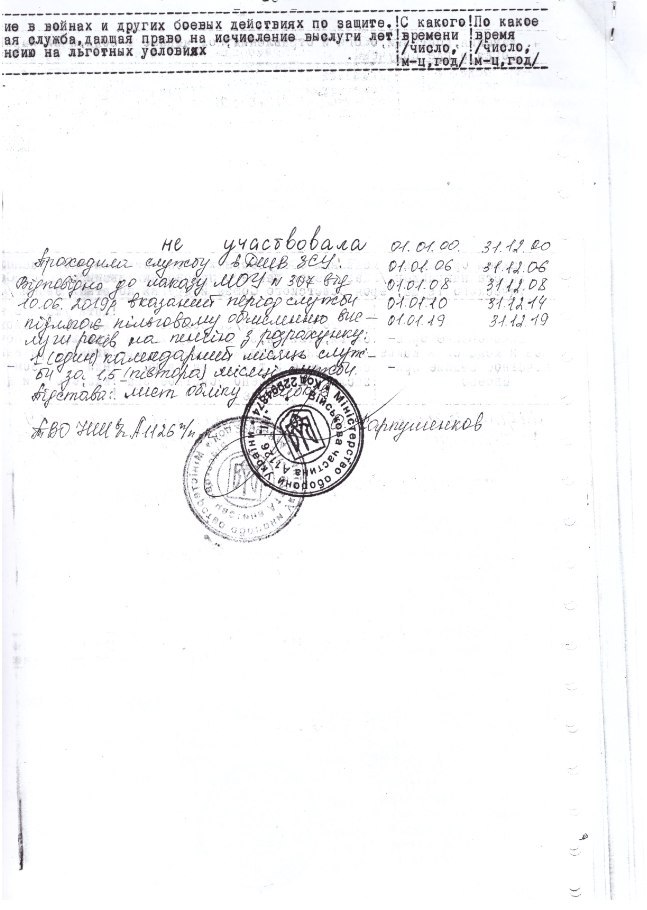 ие в войнах и других боевых действиях по защите.!С какого!По какое
ая служба,дающая право на исчисление выслуги лет!времени !время
нсию на льготных условиях !/число, !/число,
!м-ц,год/!м-ц,год/
не участвовала 01.01.00. 31.12.00
Проходила службу в ДШВ ЗСУ. 01.01.06 31.12.06
Відповідно до наказу МОУ №307 від 01.01.08 31.12.08
10.06.2019р вказаний період служби 01.01.10 31.12.14
підлягає пільговому обчисленню вис- 01.01.19 31.12.19
луги років на пенсію з розрахунку: -
1 (один) календарний місяць служ-
би за 1,5 (півтора) місяці служби. -
Підстава: лист обліку
ТВО НШ в/ч А1126 п/п-к Карпушенков
Міністерство оборони України
Військова частина А1126